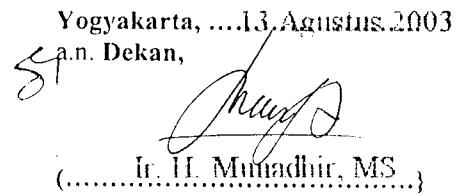 Yogyakarta, ....13.Agustus.2003
a.n. Dekan,
Ir. H. Munadhir, MS
(........................................)